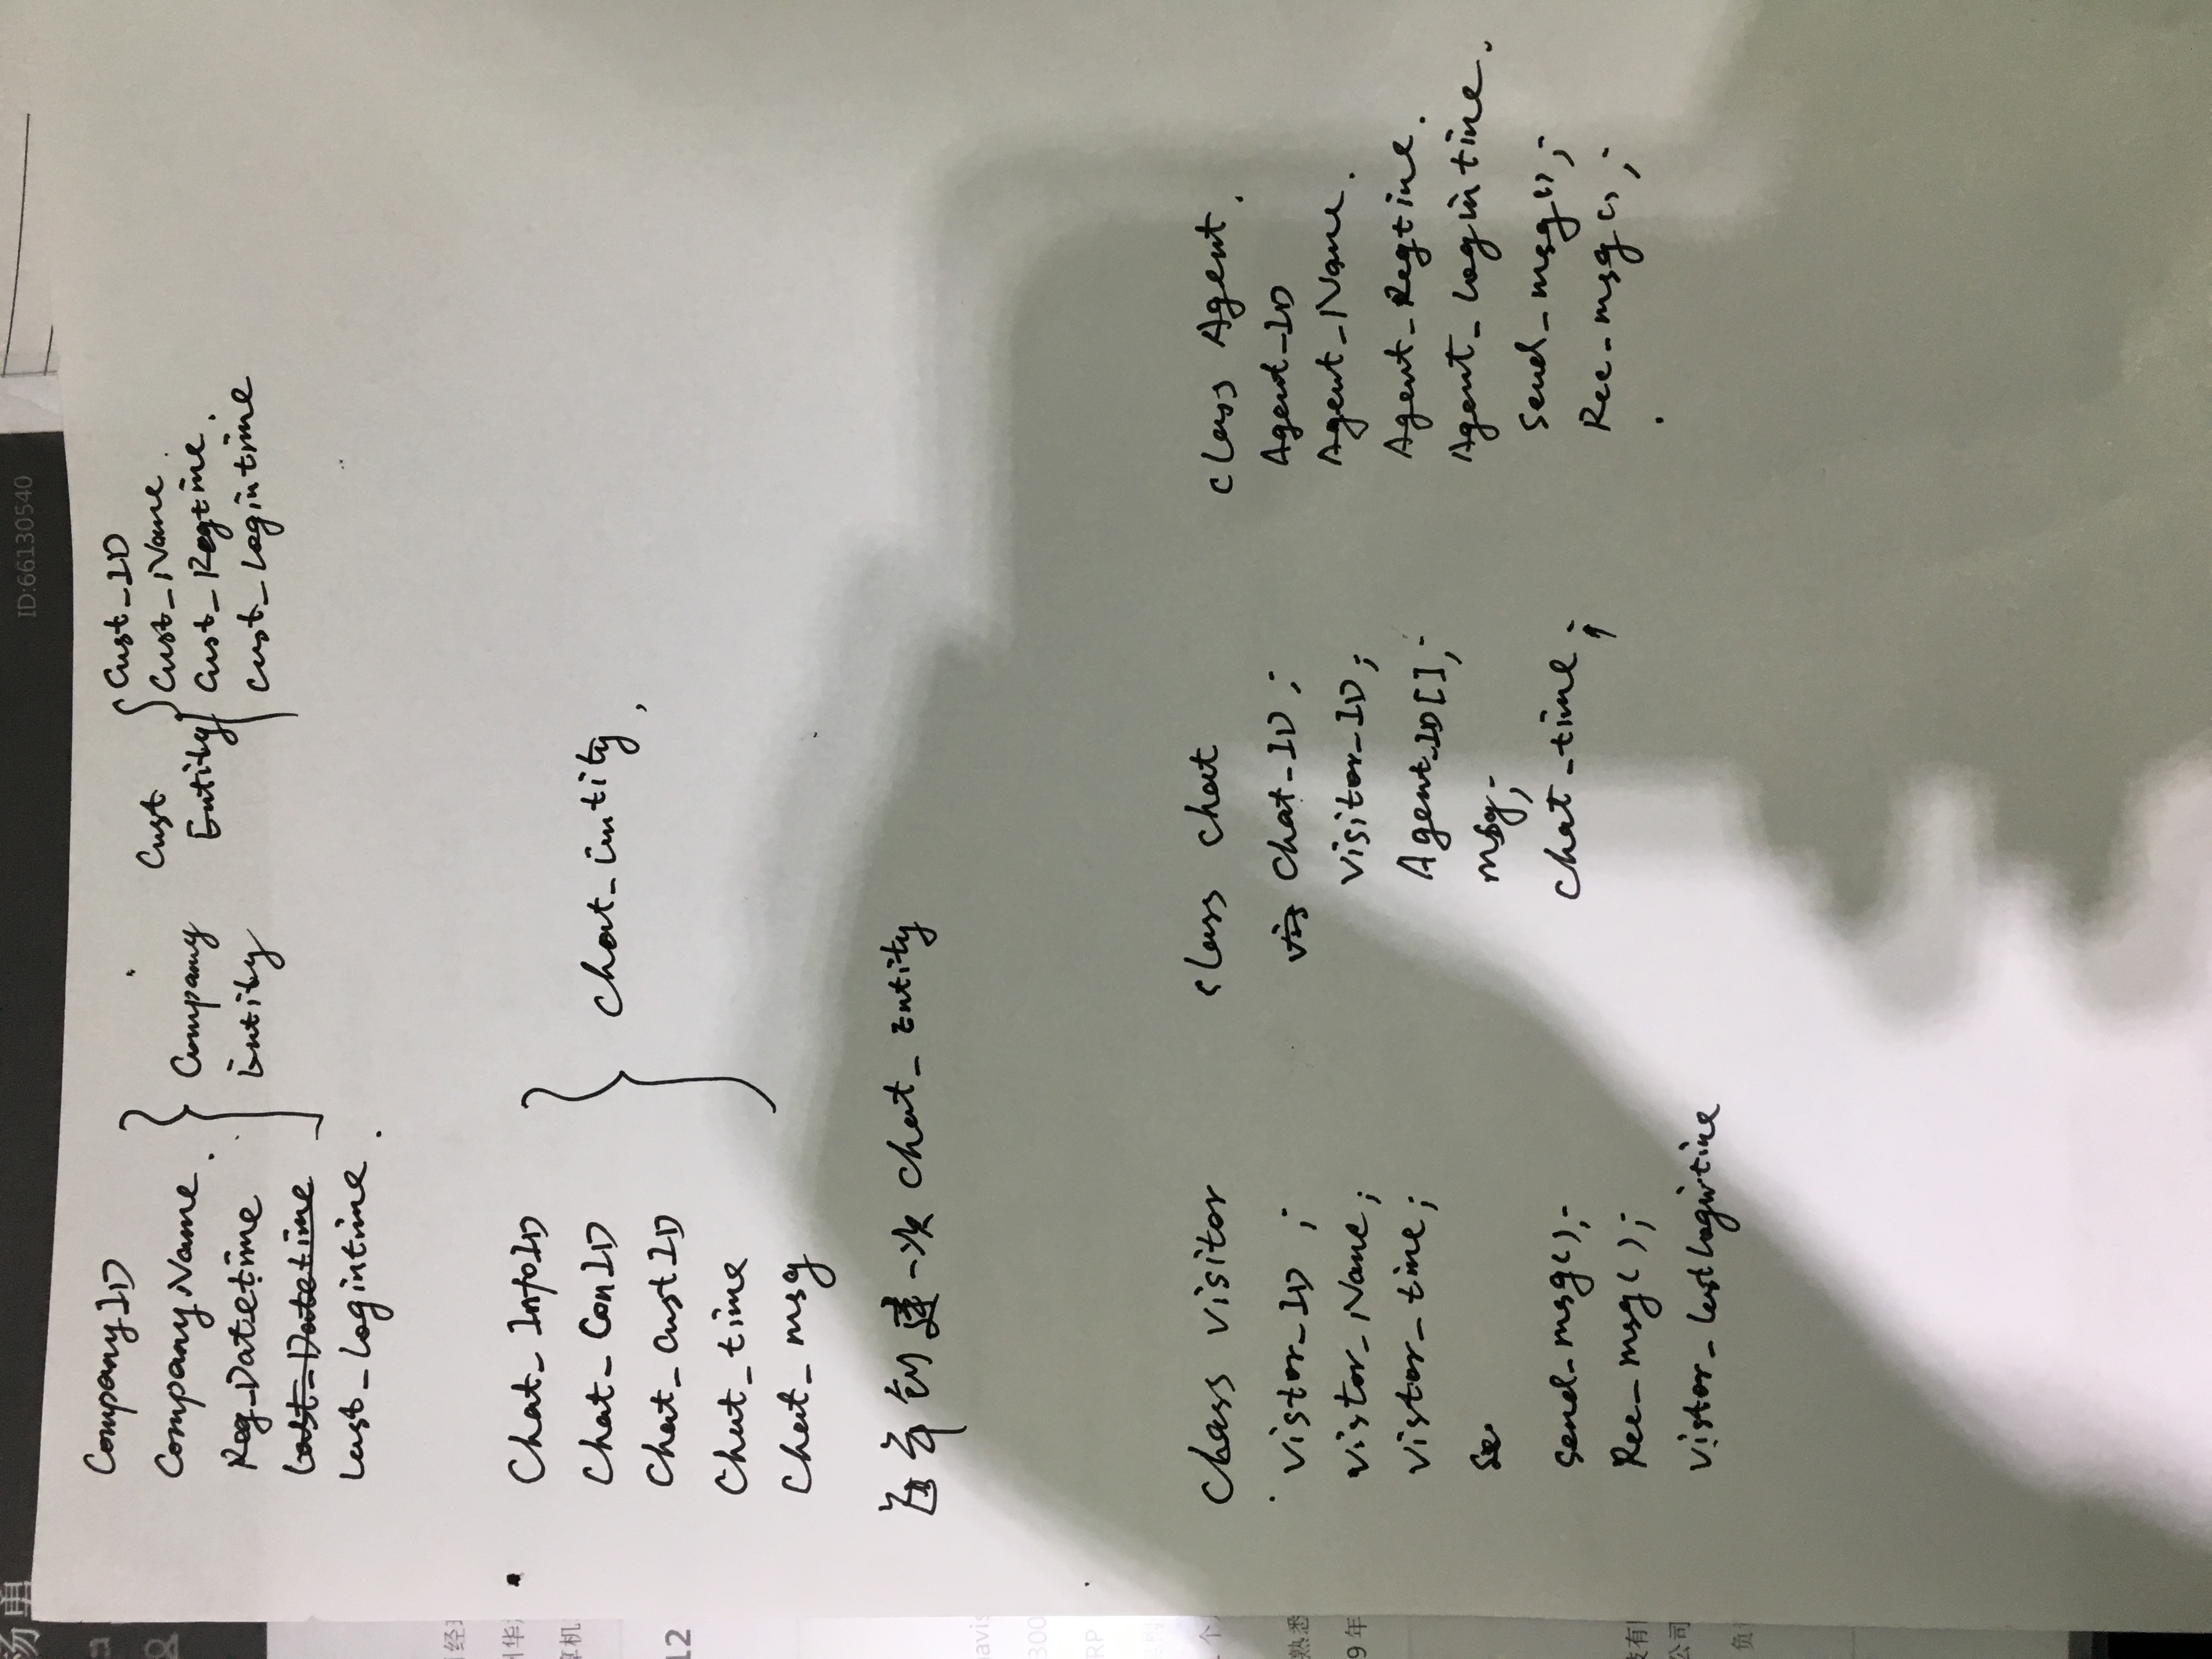 杨勇
ID:66130540
CompanyID
CompanyName.
Reg_Datetime
Last_Datetime
Last_logintime.
Company
Entity
Cust
Entity
Cust_ID
Cust_Name.
Cust_Regtime.
Cust_logintime
Chat_InfoID
Chat_ConID
Chat_CustID
Chat_time
Chat_msg
Chat_Entity,
创建一次 Chat_Entity
Class Visitor
Vistor_ID ;
Vistor_Name;
Vistor_time;
Se
Send_msg();
Rec_msg();
Vistor_lastlogintime
Class Chat
vis Chat_ID;
Visitor_ID;
Agent_ID[];
msg;
Chat_time;
Class Agent.
Agent_ID
Agent_Name.
Agent_Regtime.
Agent_logintime.
Send_msg();
Rec_msg();
经
华
算机
12
navis
300
RP
个
熟悉
9 年
技有
公司
负